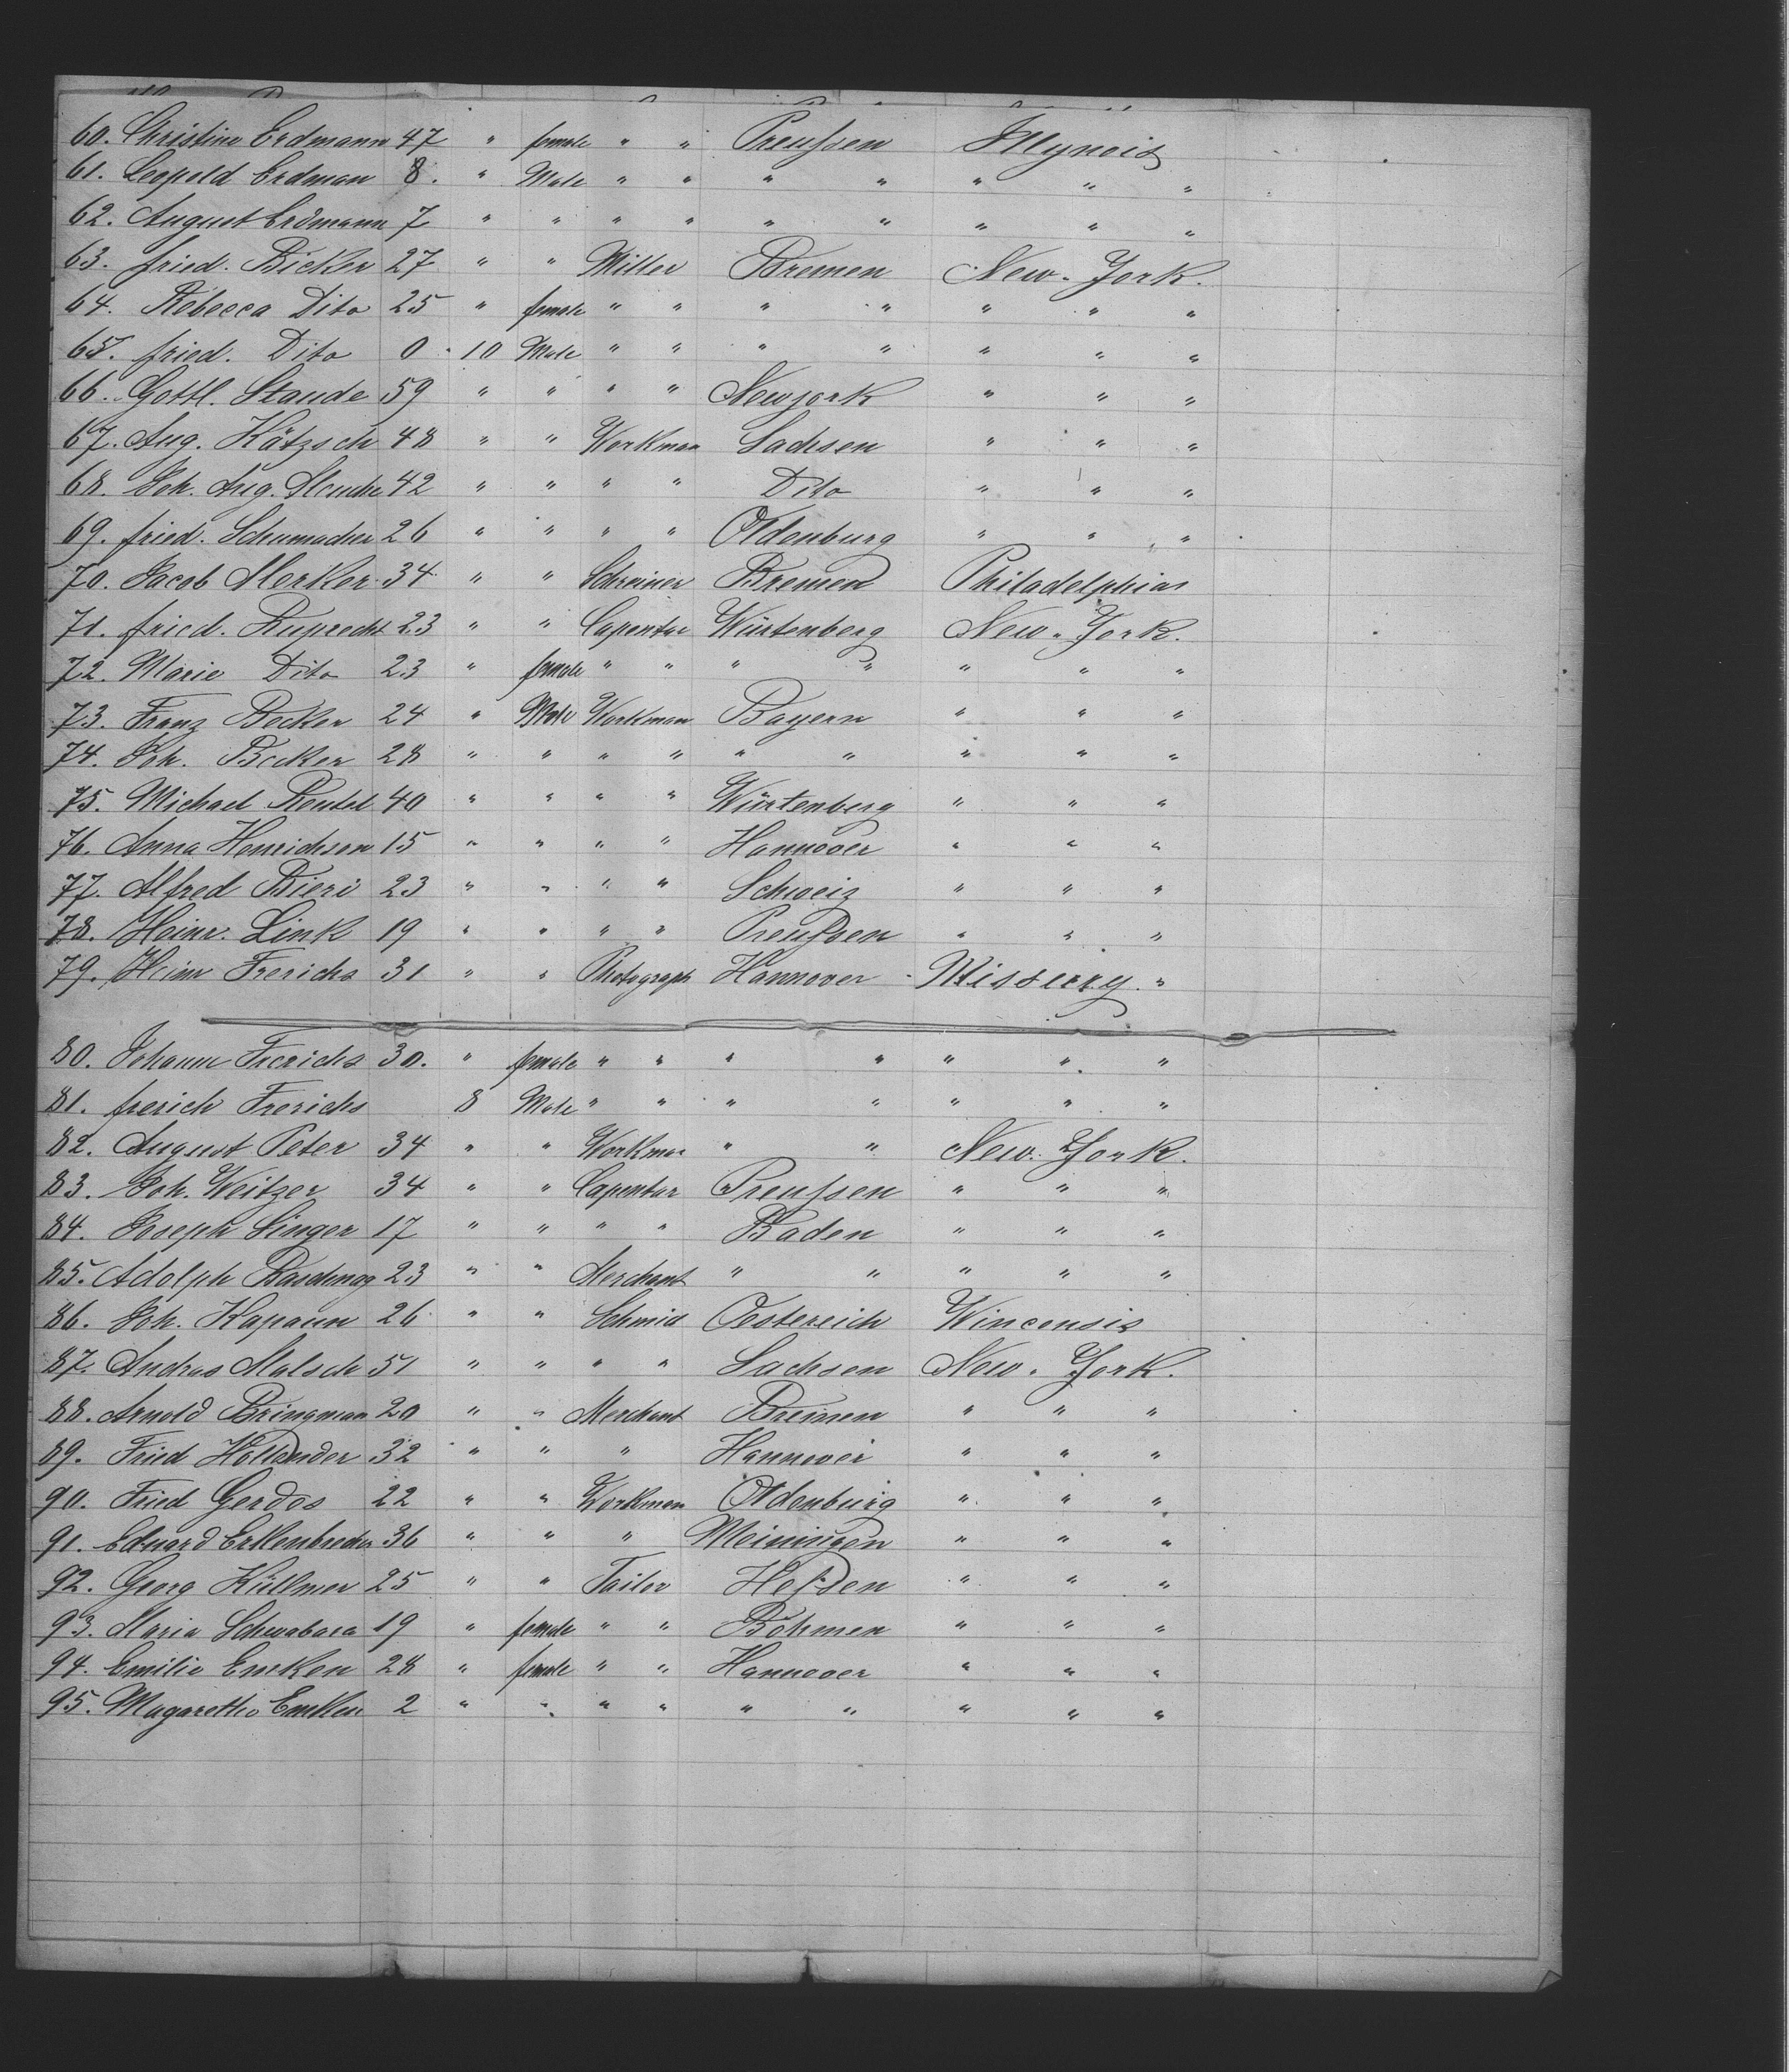 60. Christine Erdmann 47 " female " " Preußen Illynois
61. Leopold Erdman 8. " Male " " " " " " "
62. August Erdmann 7 " " " " " " " " "
63. fried. Bicker 27 " " Miller Bremen New-York.
64. Rebecca Dito 25 " female " " " " " " "
65. fried. Dito 0 10 Male " " " " " " "
66. Gottl. Staude 59 " " " " Newjork " " "
67. Aug. Kätzsch 48 " " Workman Sachsen " " "
68. Joh. Aug. 42 " " " " Dito " " "
69. fried. Schumacher 26 " " " " Oldenburg " " "
70. Jacob Merker 34 " " Schreiner Bremen Philadelphia
71. fried. Ruprecht 23 " " Capentar Würtenberg New-York.
72. Marie Dito 23 " female " " " " " " "
73. Franz Becker 24 " Male Workman Bayern " " "
74. Joh. Becker 28 " " " " " " " " "
75. Michael 40 " " " " Würtenberg " " "
76. Anna Henrichsen 15 " " " " Hannover " " "
77. Alfred Bieri 23 " " " " Schweiz " " "
78. Heinr. Link 19 " " " " Preußen " " "
79. Heinr Frerichs 31 " " Photograph Hannover Missury. "
80. Johanne Frerichs 30. " female " " " " " " "
81. frerich Frerichs 8 Male " " " " " " "
82. August Peter 34 " " Workman " " New-York.
83. Joh. Weitzer 34 " " Capentar Preußen " " "
84. Joseph Singer 17 " " " " Baden " " "
85. Adolph 23 " " Merchant " " " " "
86. Joh. Kapaun 26 " " Schmid Oestereich Wincensis
87. Andras Malsch 51 " " " " Sachsen New-York.
88. Arnold Bringman 20 " " Merchant Bremen " " "
89. Fried Hollander 32 " " " Hannover " " "
90. Fried Gerdes 22 " " Workman Oldenburg " " "
91. Eduard Erkenbrecher 36 " " " Meiningen " " "
92. Georg Küllmer 25 " " Tailor Heßen " " "
93. Maria 19 " female " " Böhmen " " "
94. Emilie Emken 28 " female " " Hannover " " "
95. Magarethe Emken 2 " " " " " " " " "